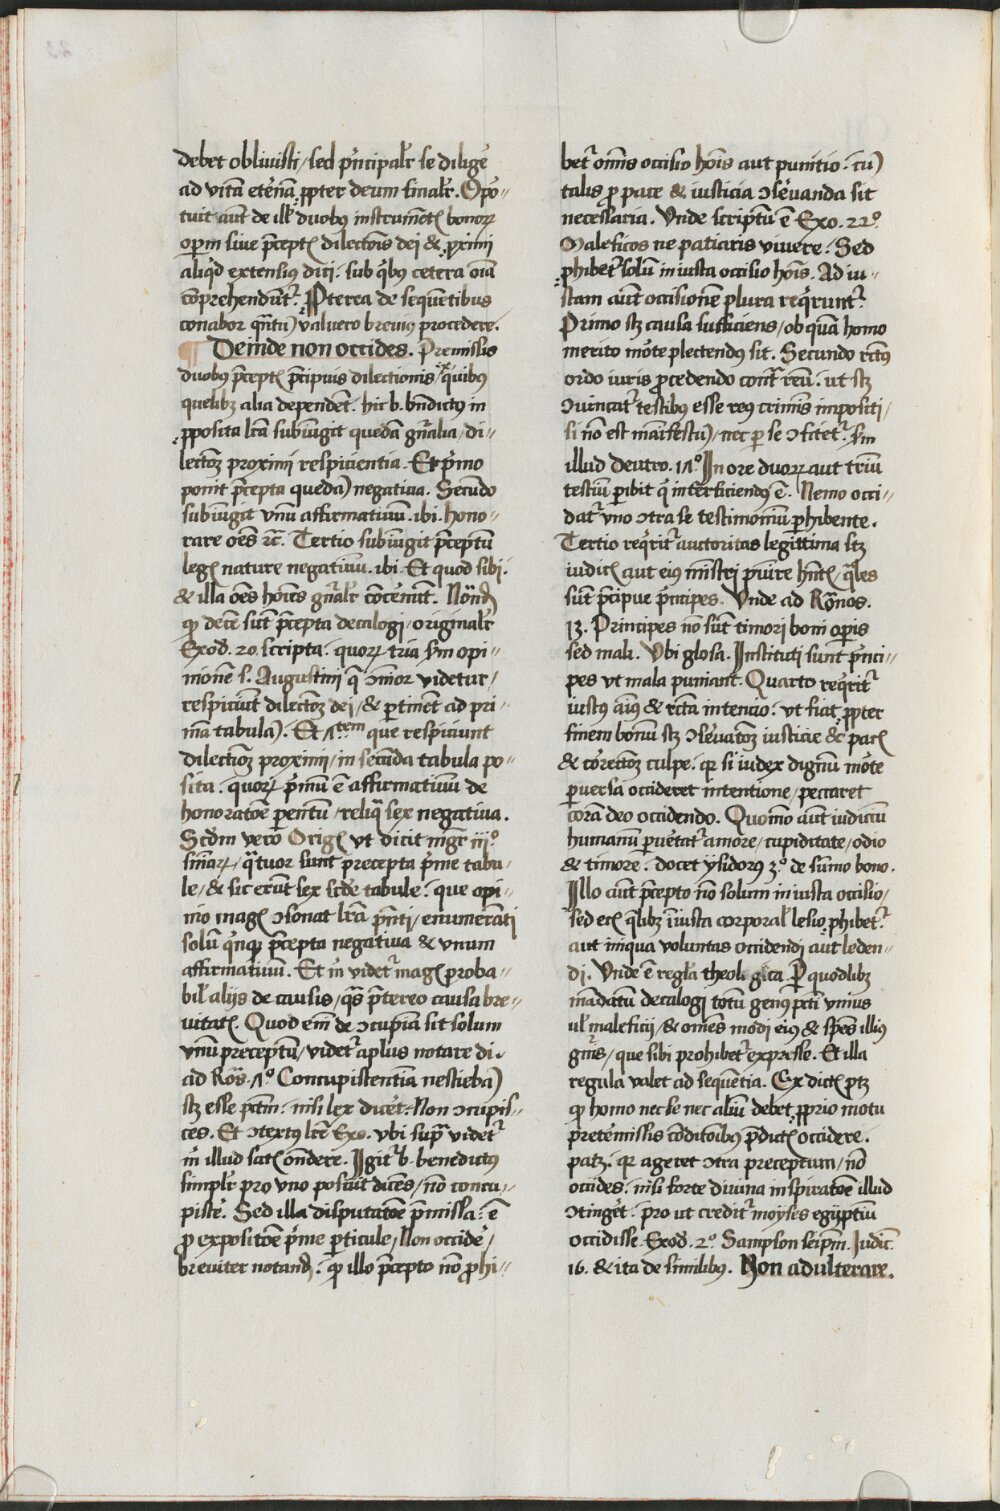 debet oblivisti / sed p͛ncipal͛r se dilige͛
ad vitā et͛nā ꝓpter deum final͛r. Opo͛⸗
tuit aūt de ill͛ duobꝰ instrumētꝭ bonoꝝ
oꝑm siue p͛ceptꝭ dilectōis dej & ꝓximi
aliq͛d extensiꝰ dici. sub q͛bꝰ cetera oīa
cōprehendūt᷑. P͛terea de sequētibus
conabor q̄ntū valuero breviꝰ procedere.
¶ Deinde non occides. Premissis
duobꝰ p͛ceptꝭ p͛cipuis dilectionis / ex quibꝰ
quelibꝫ alia dependēt. hic b. bn̄dictꝰ in
ꝓposita l͛ra subiūgit quedā gn̄alia / di⸗
lectōꝫ proximi respicientia. Et p͛mo
ponit p͛cepta quedā negatiua. Secūdo
subiūgit vnū affirmatiuū. ibi. hono⸗
rare oēs ⁊c̄. Tertio subiūgit p͛ceptū
legꝭ nature negatiuū. ibi. Et quod sibi.
& illa oēs hoīes gn̄al͛r cōcernūt. Notand
ꝙ decē sūt p͛cepta decalogi / original͛r
Exod. 20. scripta. quoꝝ tria s̄m opi⸗
nionē s. Augustini q̄ ꝯmō͛r videtur /
respiciūt dilectōꝫ dej / & ꝑtinēt ad pri⸗
mā tabulā. Et 7tem que respiciunt
dilectiōꝫ proximi / in secūda tabula po⸗
sita. quoꝝ p͛mū ē affirmatiuū de
honoratōe parentū / reliq̄ sex negatiua.
Scd̄m vero Origeꝭ vt dicit mgr̄ iijº.
sn̄iaꝝ / q̄tuor sunt precepta p͛me tabu⸗
le / & sic erūt sex scd̄e tabule. que opi⸗
nio magꝭ ꝯsonat l͛ra p͛nti / enumerāti
solū q͛nqꝫ p͛cepta negatiua & vnum
affirmatiuū. Et m̄ videt᷑ magꝭ proba⸗
bil͛ alijs de causis / q̄s p͛tereo causa bre⸗
uitatꝭ. Quod em̄ de ꝯcupīa sit solum
vnū preceptū / videt᷑ aplūs notare di.
ad Ro͛s. 7º. Concupiscentiā nesciebā
sꝫ esse pctm̄. nisi lex dicēt. Non ꝯcupis⸗
ces. Et ꝯtextꝰ l͛re Exo. vbi sup͛ videt᷑
m̄ illud satꝭ oñdere. Igit᷑ b. benedictꝰ
simpl͛r pro vno posuit dicēs / nō concu⸗
pisce͛. Sed illa disputatōe p͛missa. ē
ꝓ expositōe p͛me ꝑticule / Non occide͛ /
breuiter notand. ꝙ illo p͛cepto nō ꝓhi⸗
bet᷑ om̄is occisio hoīs aut punitio. cū
talis ꝓ pace & iusticia ꝯs͛uanda sit
necessaria. Vnde scriptū ē Exo. 22º.
Maleficos ne patiaris vivere. Sed
ꝓhibet᷑ solū iniusta occisio hoīs. Ad iu⸗
stam aūt occisionē plura req͛runt᷑.
Primo sꝫ causa sufficiens / ob quā homo
merito mo͛te plectendꝰ sit. Secundo r͛ctꝰ
ordo iuris ꝓcedendo cont͛ reū. ut sꝫ
ꝯuincat᷑ testibꝰ esse reꝰ crimīs impositi /
si nō est māifestū / nec ꝑ se ꝯfitet᷑. s̄m
illud deutro. 17º. In ore duoꝝ aut triū
testiū ꝑibit q͛ interficiendꝰ ē. Nemo occi⸗
dat᷑ vno ꝯtra se testimoniū ꝑhibente.
Tertio req͛rit᷑ auctoritas legittima sꝫ
iudicꝭ aut eiꝰ mīstri punire hn̄tꝭ / q̄les
sūt p͛cipue p͛ncipes. Vnde ad Ro͛nos.
13. Principes nō sūt timori boni oꝑis
sed mali. Vbi glosa. Instituti sunt p͛nci⸗
pes vt mala puniant. Quarto req͛rit᷑
iustꝰ aīꝰ & r͛cta intencio. vt fiat ꝓpter
finem bonū sꝫ ꝯs͛uatōꝫ iusticie & pacꝭ
& co͛rectōꝫ culpe. qꝛ si iudex dignū mo͛te
ꝑuersa occideret intentione / peccaret
corā deo occidendo. Quomō aūt iudiciū
humanū ꝑuertat᷑ amore / cupiditate / odio
& timore. docet ysidorꝰ 3º. de sūmo bono.
Illo aūt p͛cepto nō solum iniusta occisio /
sed ecꝭ q̄libꝫ īiusta corporal͛ lesio ꝓhibet᷑.
aut iniqua voluntas occidendi aut leden⸗
di. Vnde ē regla theologica. Ꝑ quodlibꝫ
mādatū decalogi totū genꝰ pct̄i vnius
ul̓ maleficij / & om̄es modi eiꝰ & spēs illiꝰ
gn̄is / que sibi prohibet᷑ expresse. Et illa
regula valet ad sequētia. Ex dictꝭ ptꝫ
ꝙ homo nec se nec aliū debet ꝓprio motu
pretermissis cōditoībꝰ p͛dictꝭ occidere.
patꝫ. qꝛ ageret ꝯtra preceptum / nō
occides. nisi forte diuina inspiratōe illud
ꝯtinge͛t. pro ut credit᷑ moyses egyptiū
occidisse. Exod. 2º. Sampson seip̄m. Judic̄.
16. & ita de similibꝰ. Non adulterare.